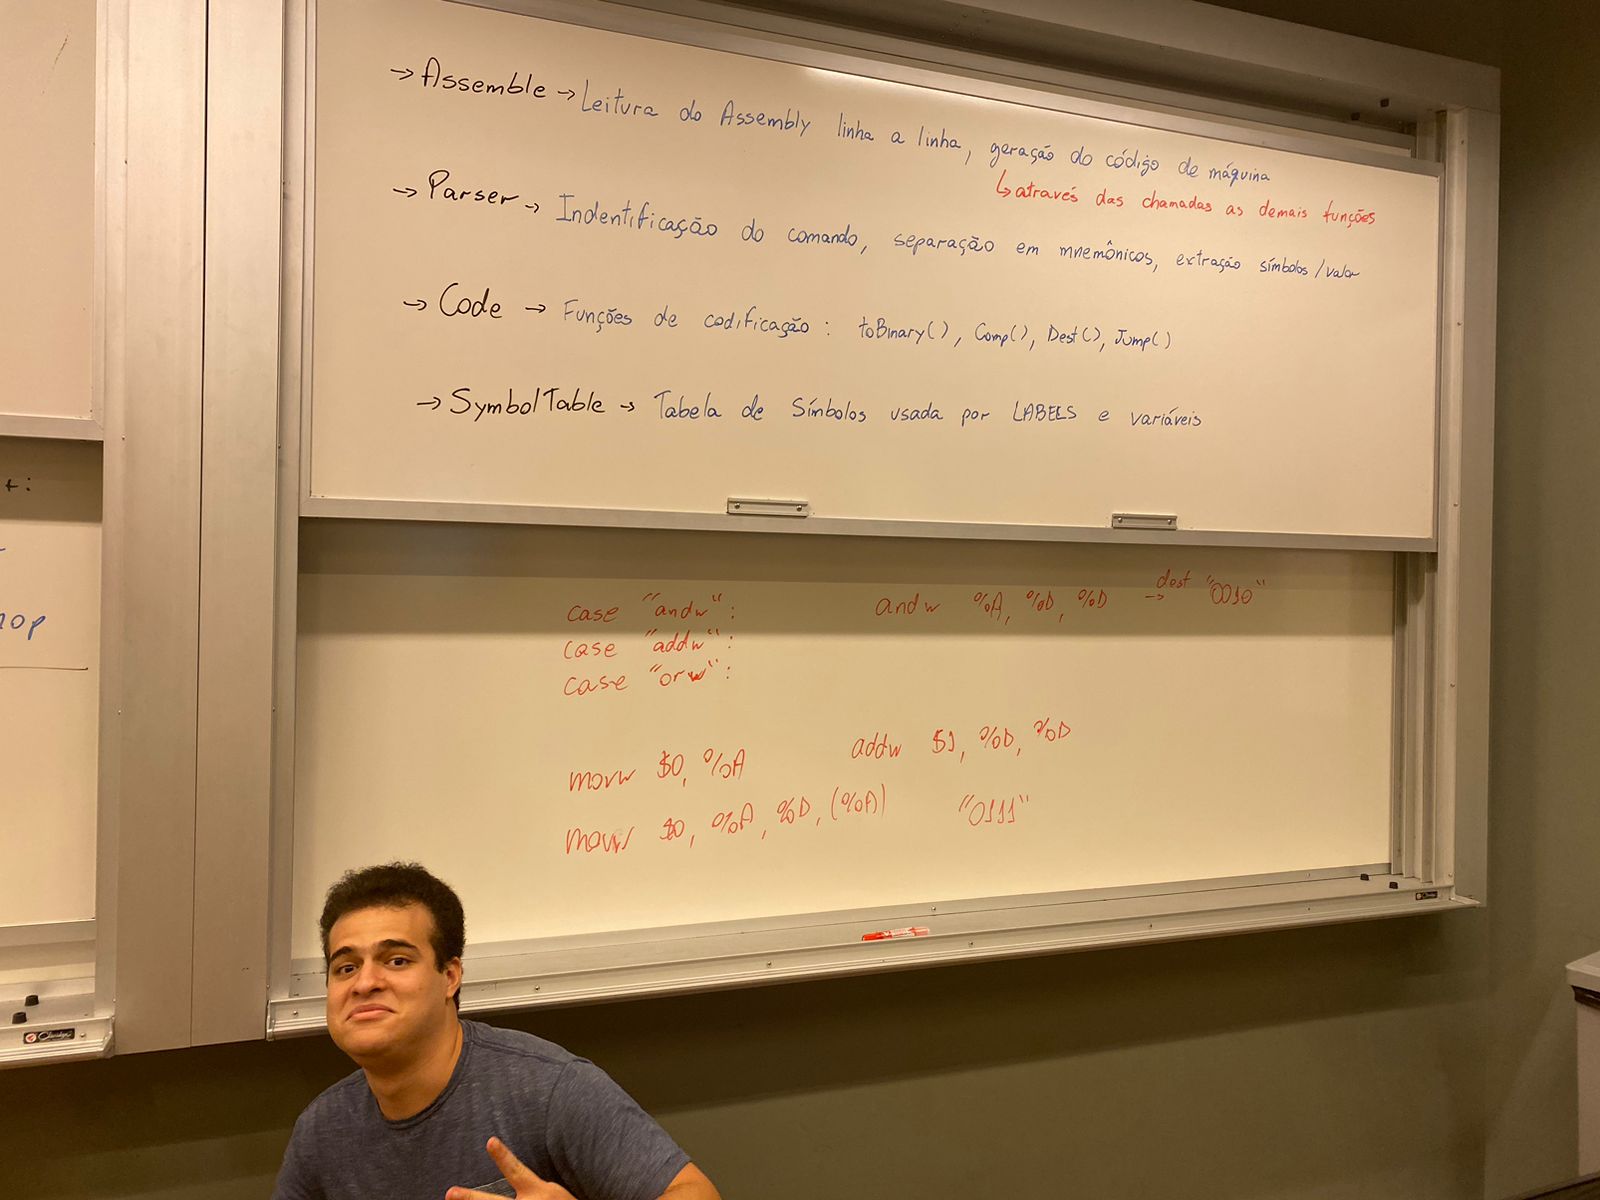 → Assemble → Leitura do Assembly linha a linha, geração do código de máquina
↳ através das chamadas as demais funções
→ Parser → Indentificação do comando, separação em mnemônicos, extração símbolos/valor
→ Code → Funções de codificação : toBinary(), Comp(), Dest(), Jump()
→ SymbolTable → Tabela de Símbolos usada por LABELS e variáveis
case "andw":
case "addw":
case "orw":
andw %A, %D, %D → dest "0010"
movw $0, %A
addw $1, %D, %D
movw $0, %A, %D, (%A) "0111"
nop